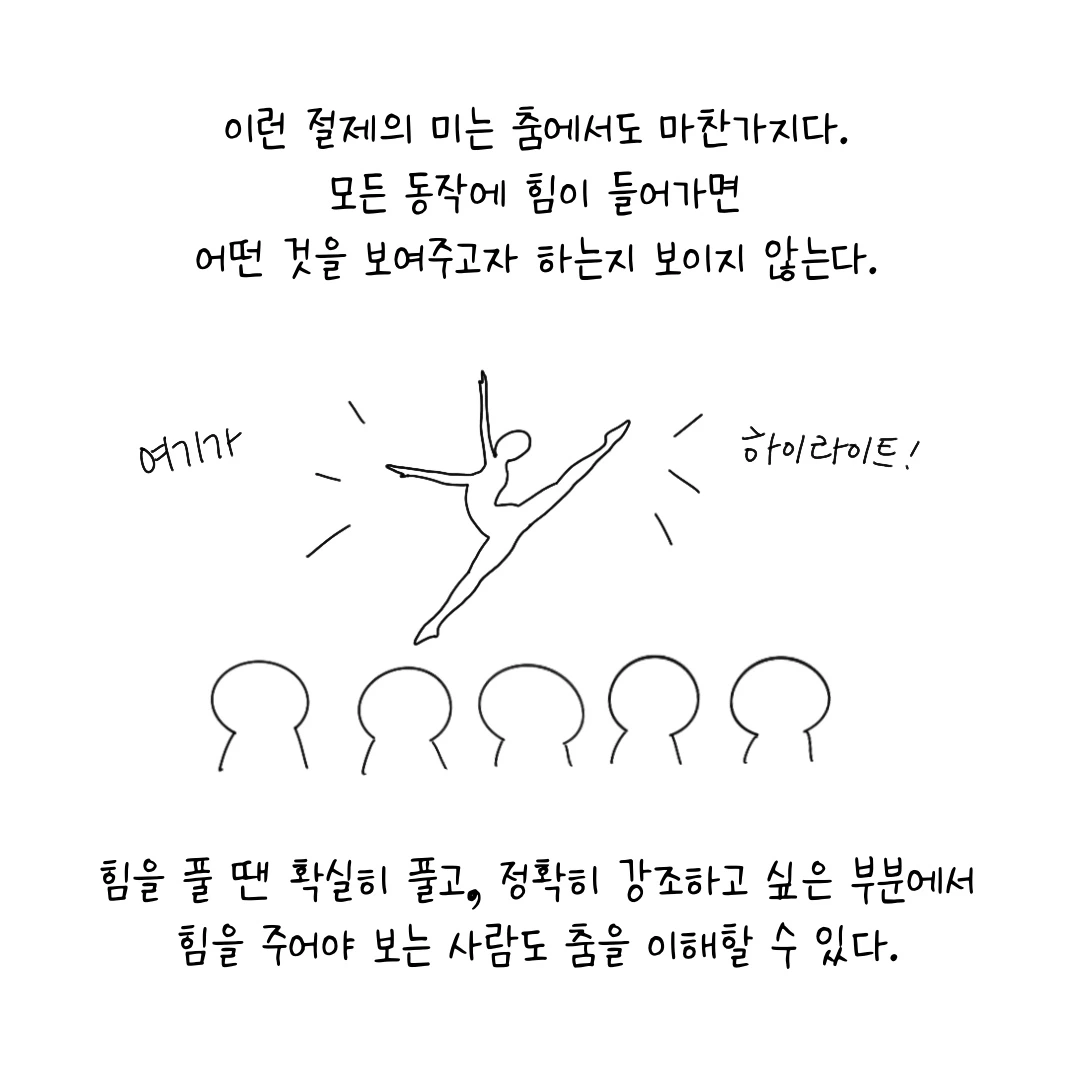 이런 절제의 미는 춤에서도 마찬가지다.
모든 동작에 힘이 들어가면
어떤 것을 보여주고자 하는지 보이지 않는다.
여기가
하이라이트!
힘을 풀 땐 확실히 풀고, 정확히 강조하고 싶은 부분에서
힘을 주어야 보는 사람도 춤을 이해할 수 있다.